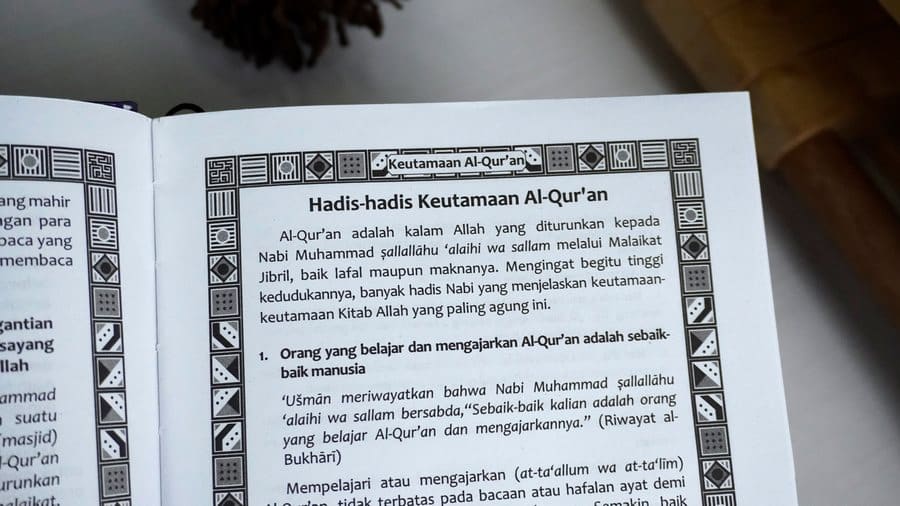 ang mahir
ngan para
baca yang
membaca
gantian
sayang
llah
ammad
suatu
masjid)
l-Qur'an
urunkan
alaikat.
Keutamaan Al-Qur'an
Hadis-hadis Keutamaan Al-Qur'an
Al-Qur'an adalah kalam Allah yang diturunkan kepada
Nabi Muhammad ṣallallāhu 'alaihi wa sallam melalui Malaikat
Jibril, baik lafal maupun maknanya. Mengingat begitu tinggi
kedudukannya, banyak hadis Nabi yang menjelaskan keutamaan-
keutamaan Kitab Allah yang paling agung ini.
1. Orang yang belajar dan mengajarkan Al-Qur'an adalah sebaik-
baik manusia
'Uṡmān meriwayatkan bahwa Nabi Muhammad ṣallallāhu
'alaihi wa sallam bersabda,“Sebaik-baik kalian adalah orang
yang belajar Al-Qur'an dan mengajarkannya.” (Riwayat al-
Bukhāri)
Mempelajari atau mengajarkan (at-ta‘allum wa at-ta‘līm)
Al-Qur'an, tidak terbatas pada bacaan atau hafalan ayat demi
Semakin baik